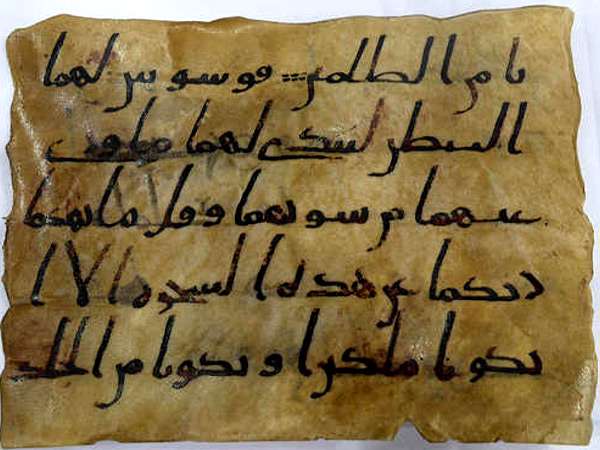 نا من الظلمين فوسوس لهما
الشيطن ليبدي لهما ما وري
عنهما من سوتهما وقل ما نهكما
ربكما عن هذه الشجرة الا ا
تكونا ملكين او تكونا من الخلد